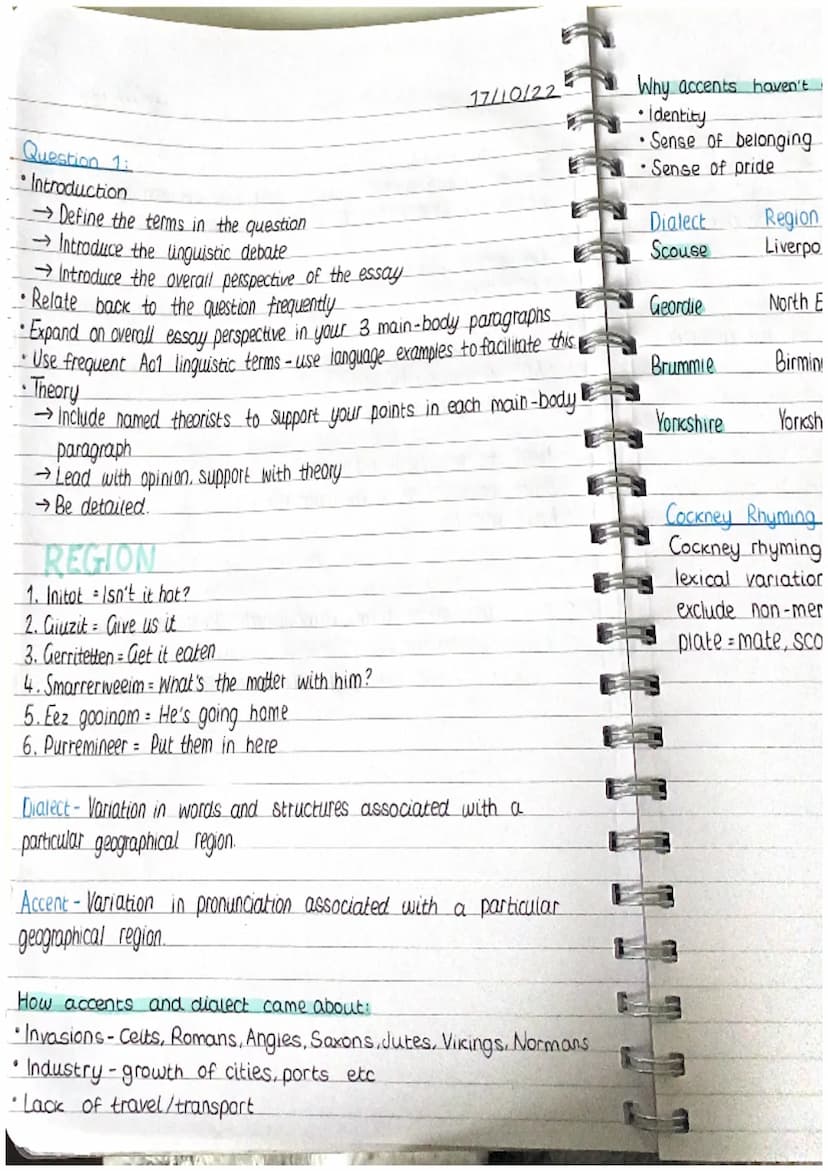 17/10/22
Question 1:
• Introduction
→ Define the terms in the question
→ Introduce the linguistic debate
→ Introduce the overall perspective of the essay
• Relate back to the question frequently
• Expand on overall essay perspective in your 3 main-body paragraphs
• Use frequent Ao1 linguistic terms - use language examples to facilitate this
• Theory
→ Include named theorists to support your points in each main-body
paragraph
→ Lead with opinion, support with theory
→ Be detailed.
REGION
1. Initot = Isn't it hot?
2. Giuzit = Give us it
3. Gerritetten = Get it eaten
4. Smarrerweeim = What's the matter with him?
5. Eez gooinom = He's going home
6. Purremineer = Put them in here
Dialect - Variation in words and structures associated with a
particular geographical region.
Accent - Variation in pronunciation associated with a particular
geographical region.
How accents and dialect came about:
• Invasions - Celts, Romans, Angles, Saxons, Jutes, Vikings, Normans
• Industry - growth of cities, ports etc
• Lack of travel/transport
Why accents haven't
• Identity
• Sense of belonging
• Sense of pride
Dialect Region
Scouse Liverpo
Geordie North E
Brummie Birmin
Yorkshire Yorksh
Cockney Rhyming
Cockney rhyming
lexical variation
exclude non-mem
plate = mate, sco